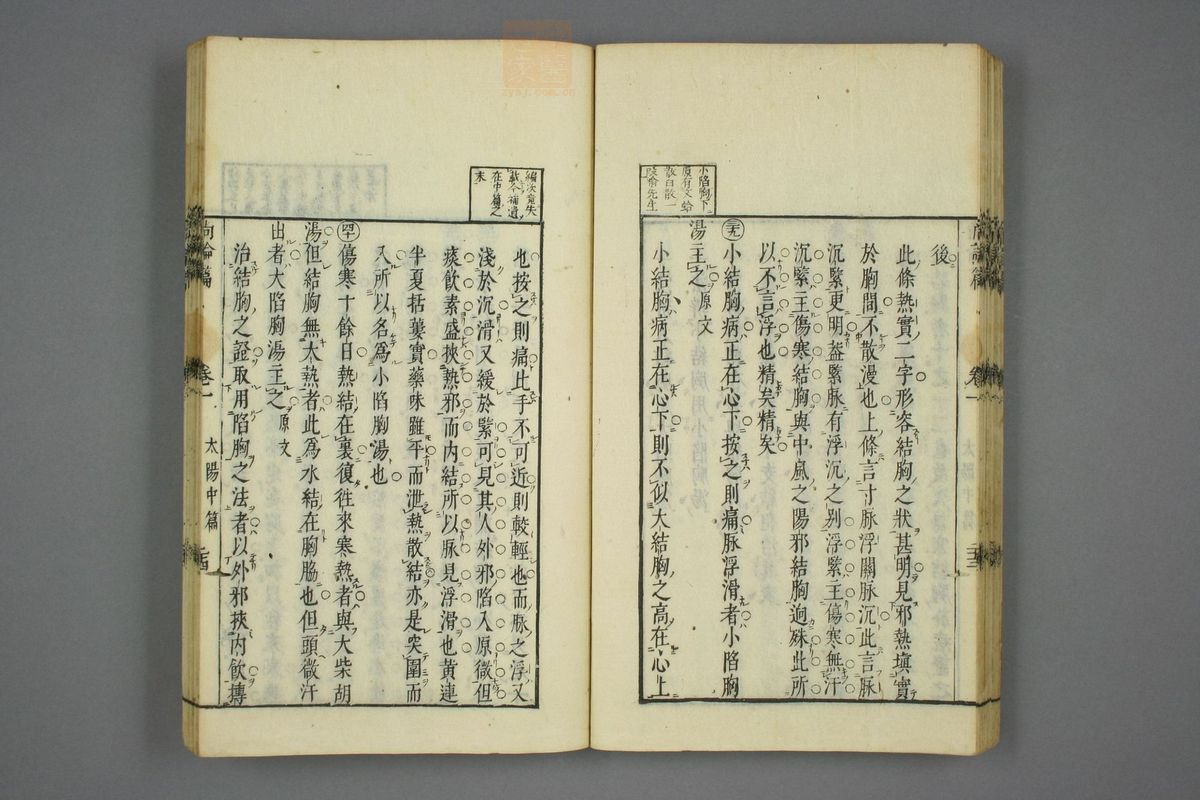 小陷胸下
原有文蛤
散白散一
後
此條熱實二字形容結胸之狀甚明見邪熱塡實
於胸間不散漫也上條言寸脉浮關脉沉此言脉
沉緊更明葢緊脉有浮沉之别浮緊主傷寒無汗
沉緊主傷寒結胸與中風之陽邪結胸迥殊此所
以不言浮也精矣精矣
小結胸病正在心下按之則痛脉浮滑者小陷胸
湯主之原文
小結胸病正在心下則不似大結胸之高在心上
尚論篇 卷一 太陽中篇
編次竟失
載今補遺
在中篇之
末
也按之則痛比手不可近則較輕也而脉之浮又
淺於沉滑又緩於緊可見其人外邪陷入原微但
痰飮素盛挾熱邪而内結所以脉見浮滑也黄連
半夏括蔞實藥味雖平而泄熱散結亦是突圍而
入所以名爲小陷胸湯也
傷寒十餘日熱結在裏復徃來寒熱者與大柴胡
湯但結胸無大熱者此爲水結在胸脇也但頭微汗
出者大陷胸湯主之原文
治結胸之證取用陷胸之法者以外邪挾内飮摶
尚論篇 卷一 太陽中篇
zysj.com.cn